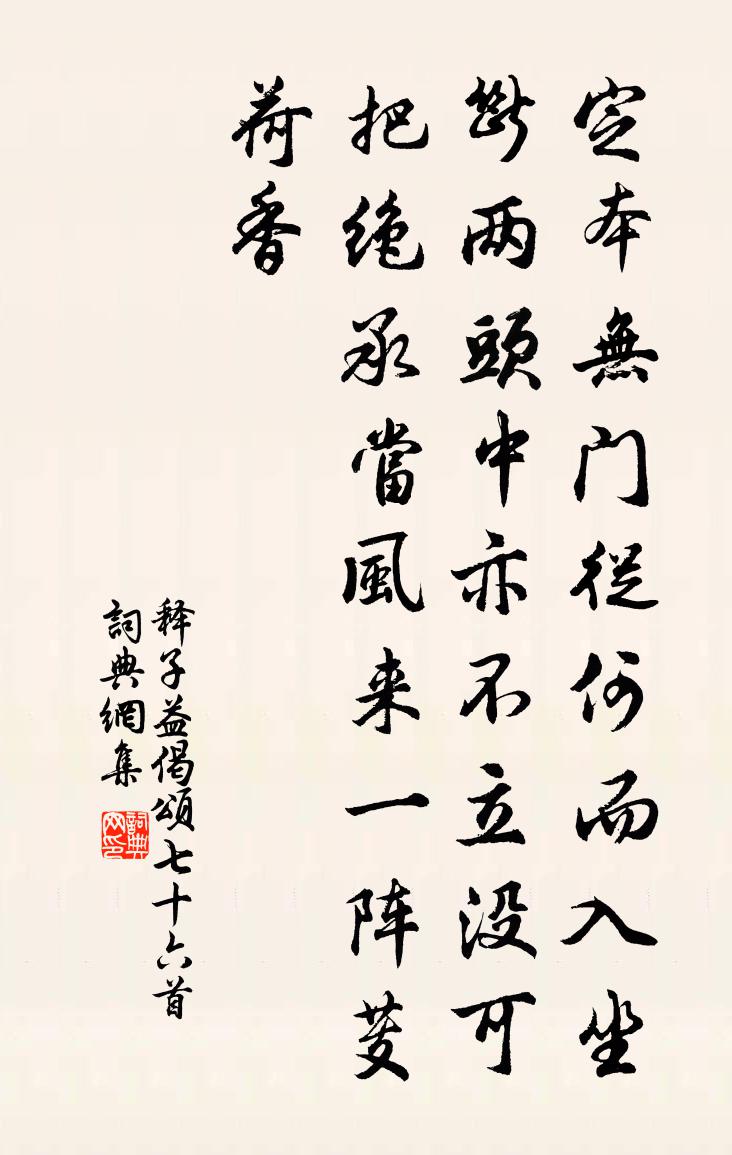 定本無门從何而入坐
断两頭中亦不立没可
把绝承當風来一阵芰
荷香
释子益偈頌七十六首
詞典網集
詞典
网印